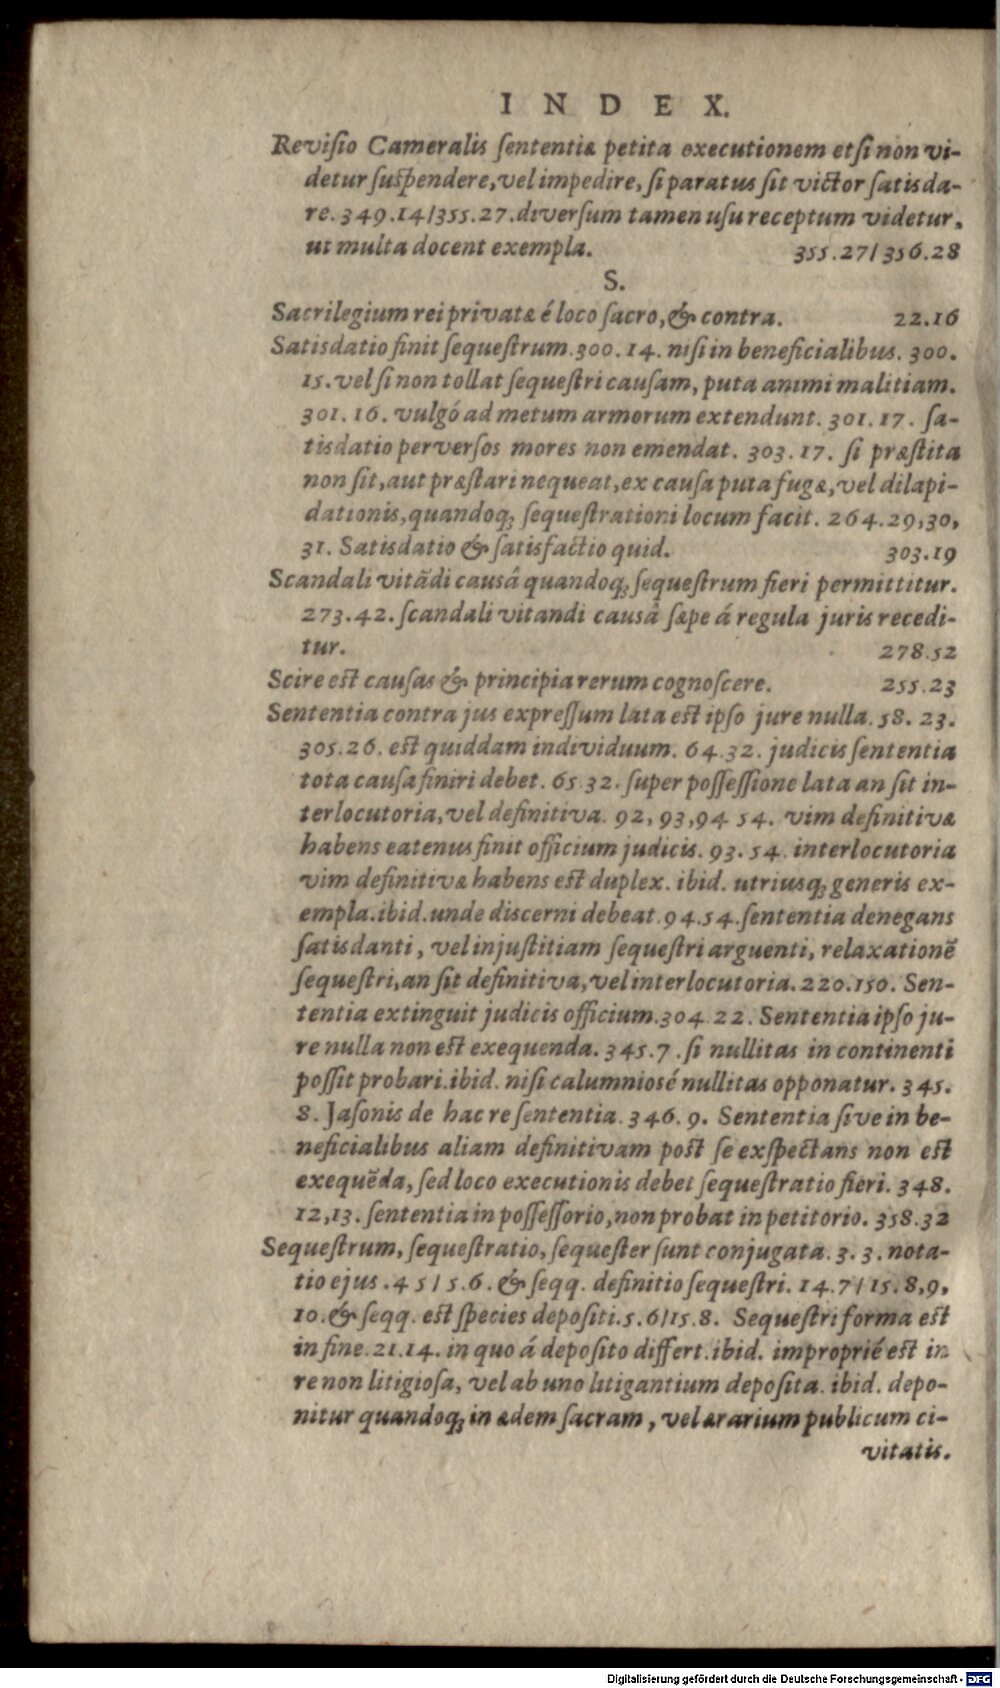 INDEX.
Reviſio Cameralis ſententiæ petita executionem etſi non vi-
detur ſuſpendere, vel impedire, ſi paratus ſit victor ſatisda-
re. 349.14/355.27. diverſum tamen uſu receptum videtur,
ut multa docent exempla. 355.27/356.28
S.
Sacrilegium rei privatæ é loco ſacro, & contra. 22.16
Satisdatio finit ſequeſtrum. 300. 14. niſi in beneficialibus. 300.
15. vel ſi non tollat ſequeſtri cauſam, puta animi malitiam.
301. 16. vulgó ad metum armorum extendunt. 301. 17. ſa-
tisdatio perverſos mores non emendat. 303. 17. ſi præſtita
non ſit, aut præſtari nequeat, ex cauſa puta fugæ, vel dilapi-
dationis, quandoq; ſequeſtrationi locum facit. 264. 29, 30,
31. Satisdatio & ſatisfactio quid. 303.19
Scandali vitādi causâ quandoq; ſequeſtrum fieri permittitur.
273. 42. ſcandali vitandi causâ ſæpe á regula juris recedi-
tur. 278.52
Scire eſt cauſas & principia rerum cognoſcere. 255.23
Sententia contra jus expreſſum lata eſt ipſo jure nulla. 58. 23.
305. 26. eſt quiddam individuum. 64. 32. judicis ſententia
tota cauſa finiri debet. 65 32. ſuper poſſeſſione lata an ſit in-
terlocutoria, vel definitiva. 92, 93, 94 54. vim definitivæ
habens eatenus finit officium judicis. 93. 54. interlocutoria
vim definitivæ habens eſt duplex. ibid. utriusq; generis ex-
empla. ibid. unde discerni debeat. 94. 54. ſententia denegans
ſatisdanti, vel injuſtitiam ſequeſtri arguenti, relaxationē
ſequeſtri, an ſit definitiva, vel interlocutoria. 220. 150. Sen-
tentia extinguit judicis officium. 304 22. Sententia ipſo ju-
re nulla non eſt exequenda. 345. 7. ſi nullitas in continenti
poſſit probari. ibid. niſi calumniosé nullitas opponatur. 345.
8. Jaſonis de hac re ſententia. 346. 9. Sententia ſive in be-
neficialibus aliam definitivam poſt ſe exſpectans non eſt
exequēda, ſed loco executionis debet ſequeſtratio fieri. 348.
12, 13. ſententia in poſſeſſorio, non probat in petitorio. 358.32
Sequeſtrum, ſequeſtratio, ſequeſter ſunt conjugata. 3. 3. nota-
tio ejus. 4 5/5. 6. & ſeqq. definitio ſequeſtri. 14. 7/15. 8, 9,
10. & ſeqq. eſt ſpecies depoſiti. 5. 6/15. 8. Sequeſtri forma eſt
in fine. 21. 14. in quo á depoſito differt. ibid. improprié eſt in
re non litigioſa, vel ab uno litigantium depoſita. ibid. depo-
nitur quandoq; in ædem ſacram, vel ærarium publicum ci-
vitatis.
Digitalisierung gefördert durch die Deutsche Forschungsgemeinschaft - DFG